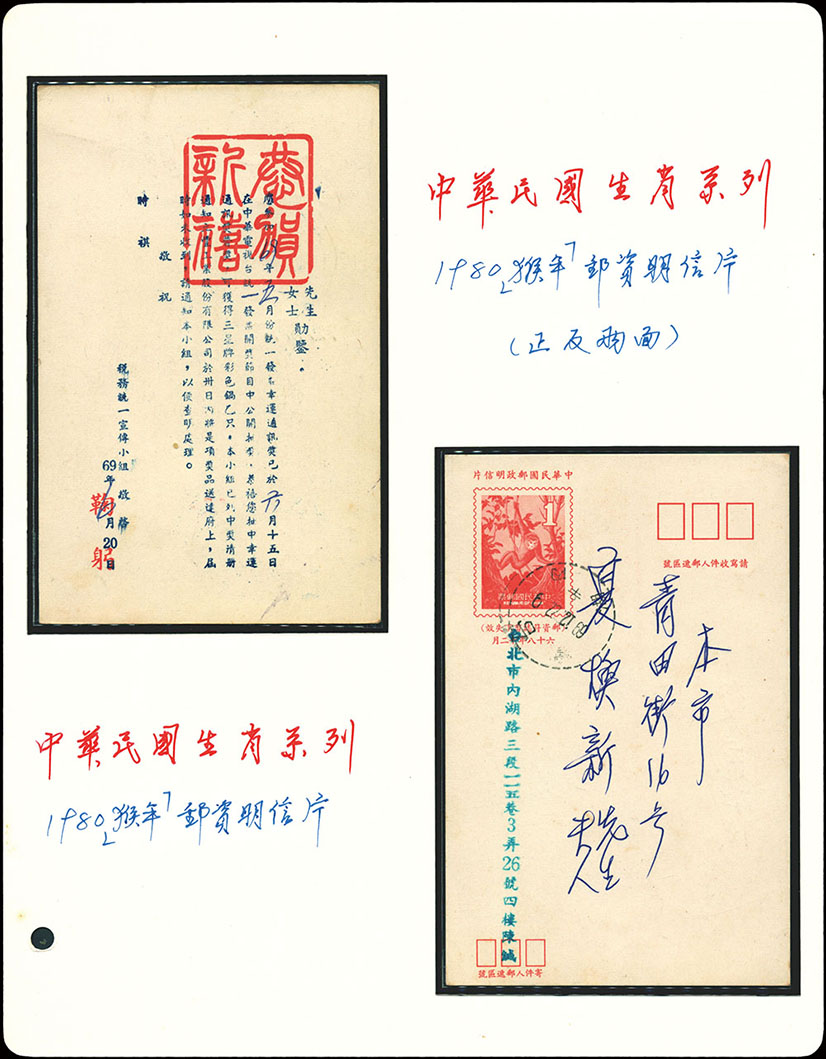 恭賀
新禧
先生
女士 勛鑒。
年五月份統一發票幸運通訊獎已於六月十五日
在中華電視台統一發票開獎節目中公開抽獎,恭禧您抽中幸運
通訊獎 可獲得三星牌彩色鍋乙只。本小組已列中獎清冊
通知 工業股份有限公司於卅日內將是項獎品送達府上,屆
時如未收到,請通知本小組,以便查明處理。
敬祝
時祺
稅務統一宣傳小組 敬啓
69年 月20日
鞠躬
中華民國生肖系列
1980「猴年」郵資明信片
(正反兩面)
中華民國郵政明信片
1
中華民國郵票
請寫收件人郵遞區號
六十八年十二月
本市
青田街16号
夏換新 先生
夫人
台北市內湖路三段一一五巷3弄26號四樓陳誠
寄件人郵遞區號
中華民國生肖系列
1980「猴年」郵資明信片